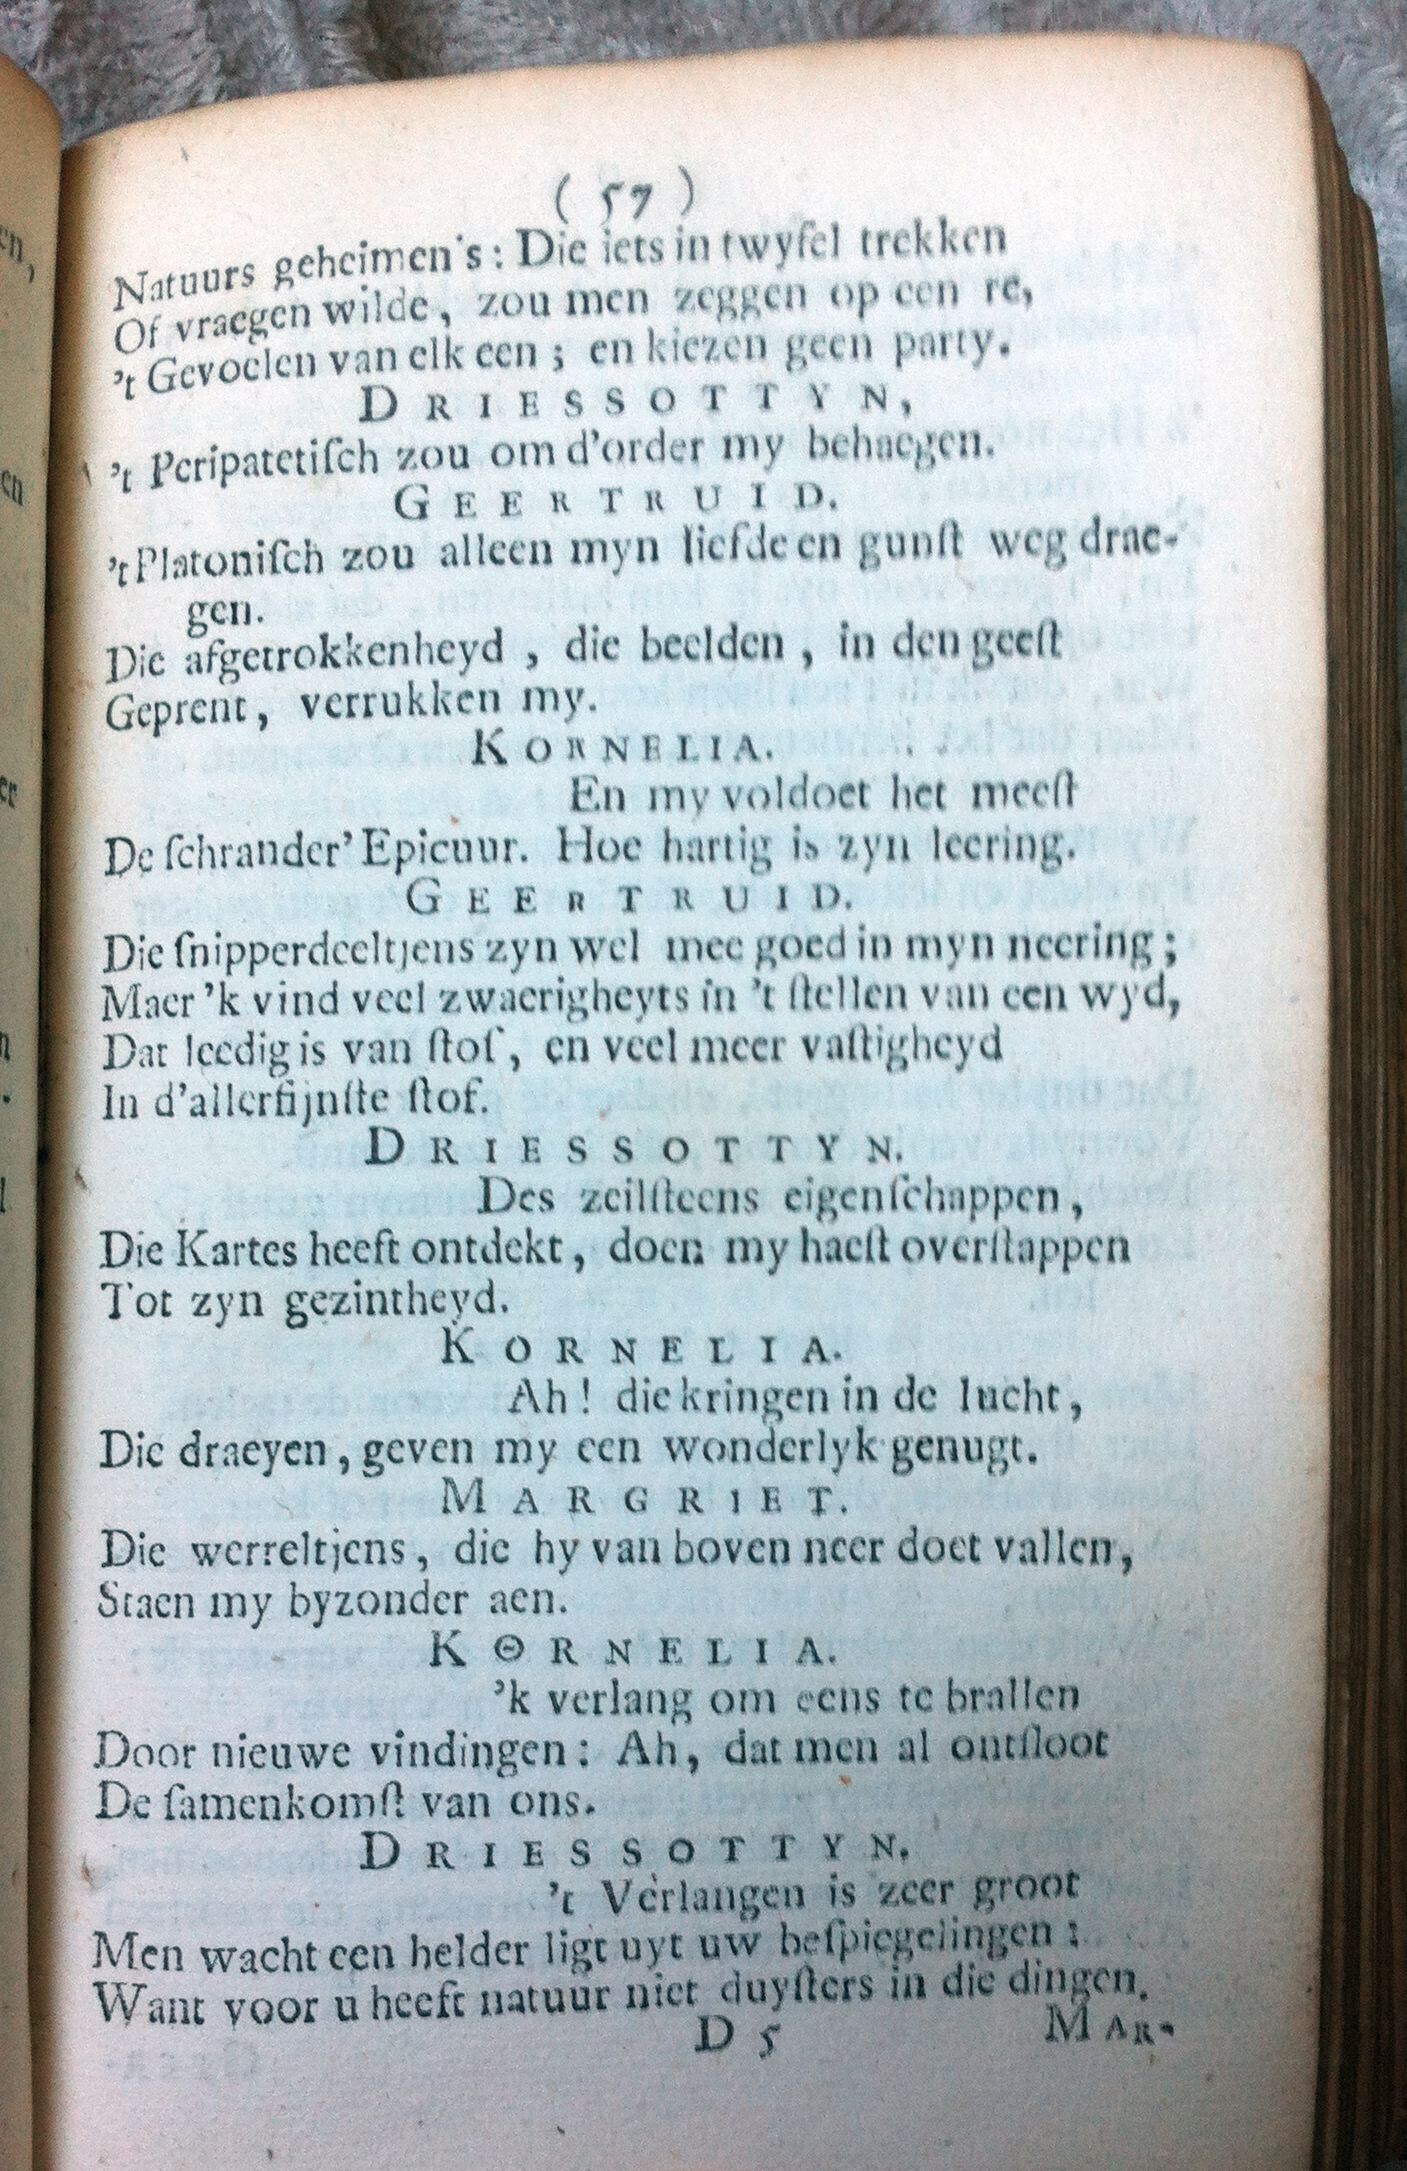 ( 57 )
Natuurs geheimen's: Die iets in twyfel trekken
Of vraegen wilde, zou men zeggen op een re,
't Gevoelen van elk een; en kiezen geen party.
DRIESSOTTYN,
't Peripatetiſch zou om d'order my behaegen.
GEERTRUID.
't Platoniſch zou alleen myn liefde en gunſt weg drae-
gen.
Die afgetrokkenheyd, die beelden, in den geeſt
Geprent, verrukken my.
KORNELIA.
En my voldoet het meeſt
De ſchrander' Epicuur. Hoe hartig is zyn leering.
GEERTRUID.
Die ſnipperdeeltjens zyn wel mee goed in myn neering;
Maer 'k vind veel zwaerigheyts in 't ſtellen van een wyd,
Dat leedig is van ſtof, en veel meer vaſtigheyd
In d'allerfijnſte ſtof.
DRIESSOTTYN.
Des zeilſteens eigenſchappen,
Die Kartes heeft ontdekt, doen my haeſt overſtappen
Tot zyn gezintheyd.
KORNELIA.
Ah! die kringen in de lucht,
Die draeyen, geven my een wonderlyk genugt.
MARGRIET.
Die werreltjens, die hy van boven neer doet vallen,
Staen my byzonder aen.
KORNELIA.
'k verlang om eens te brallen
Door nieuwe vindingen: Ah, dat men al ontſloot
De ſamenkomſt van ons.
DRIESSOTTYN.
't Verlangen is zeer groot
Men wacht een helder ligt uyt uw beſpiegelingen:
Want voor u heeft natuur niet duyſters in die dingen.
D 5 MAR-